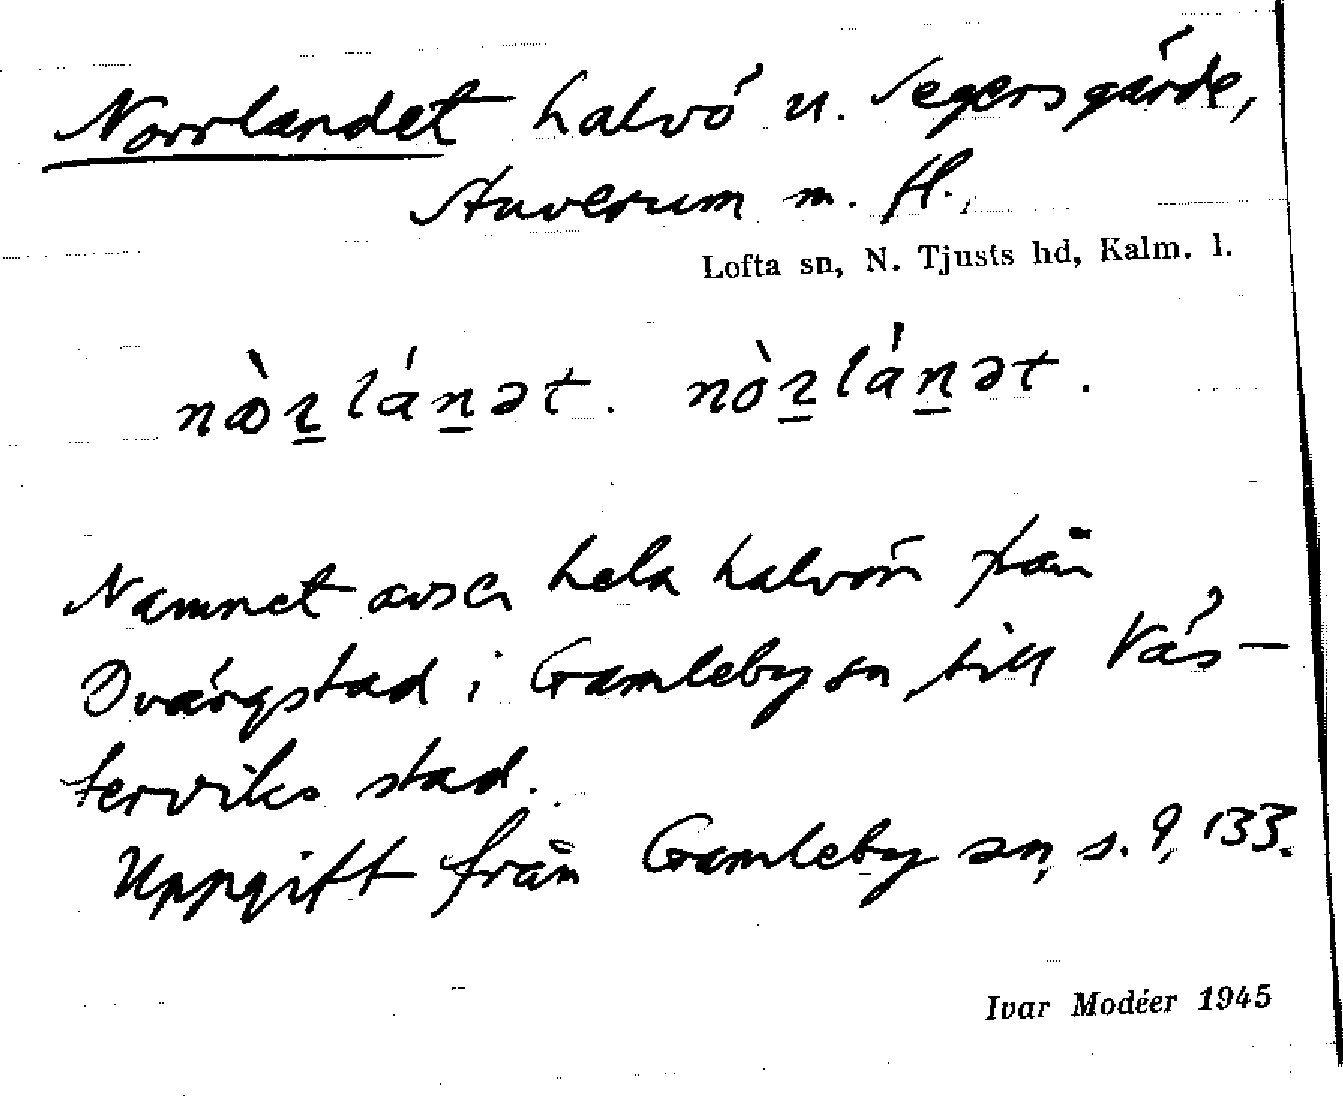 Norrlandet halvö u. Segersgärde,
Anverum m. fl.
Lofta sn, N. Tjusts hd, Kalm. l.
nòɽlánət. nòɽlánət.
Namnet avser hela halvön från
Dvärgstad i Gamleby sn till Väs-
terviks stad.
Uppgift från Gamleby sn, s. 9, 133.
Ivar Modéer 1945